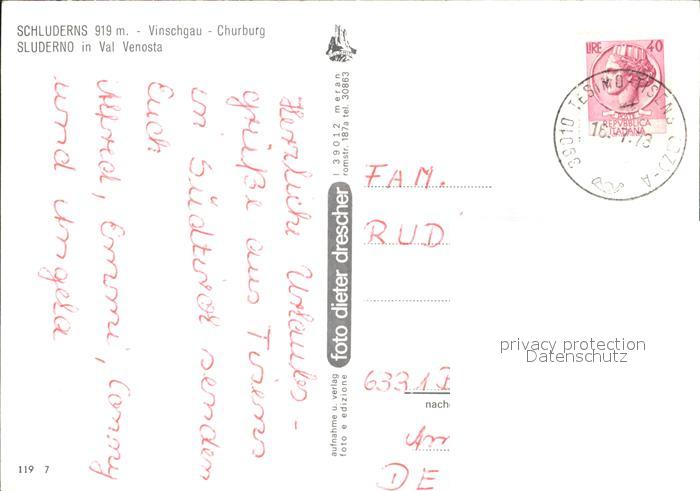 SCHLUDERNS 919 m. - Vinschgau - Churburg
SLUDERNO in Val Venosta
Herzliche Urlaubs-
grüße aus Tisens
in Südtirol senden
Euch
Alfred, Emmi, Conny
und Angela
119 7
aufnahme u. verlag
foto e edizione
foto dieter drescher
I 39012 meran
romstr. 187a tel. 30863
LIRE 40
POSTE
REPVBBLICA
ITALIANA
39010 TESIMO-TISENS (BZ)-A
FAM.
RUD
6331
nach
DE
privacy protection
Datenschutz